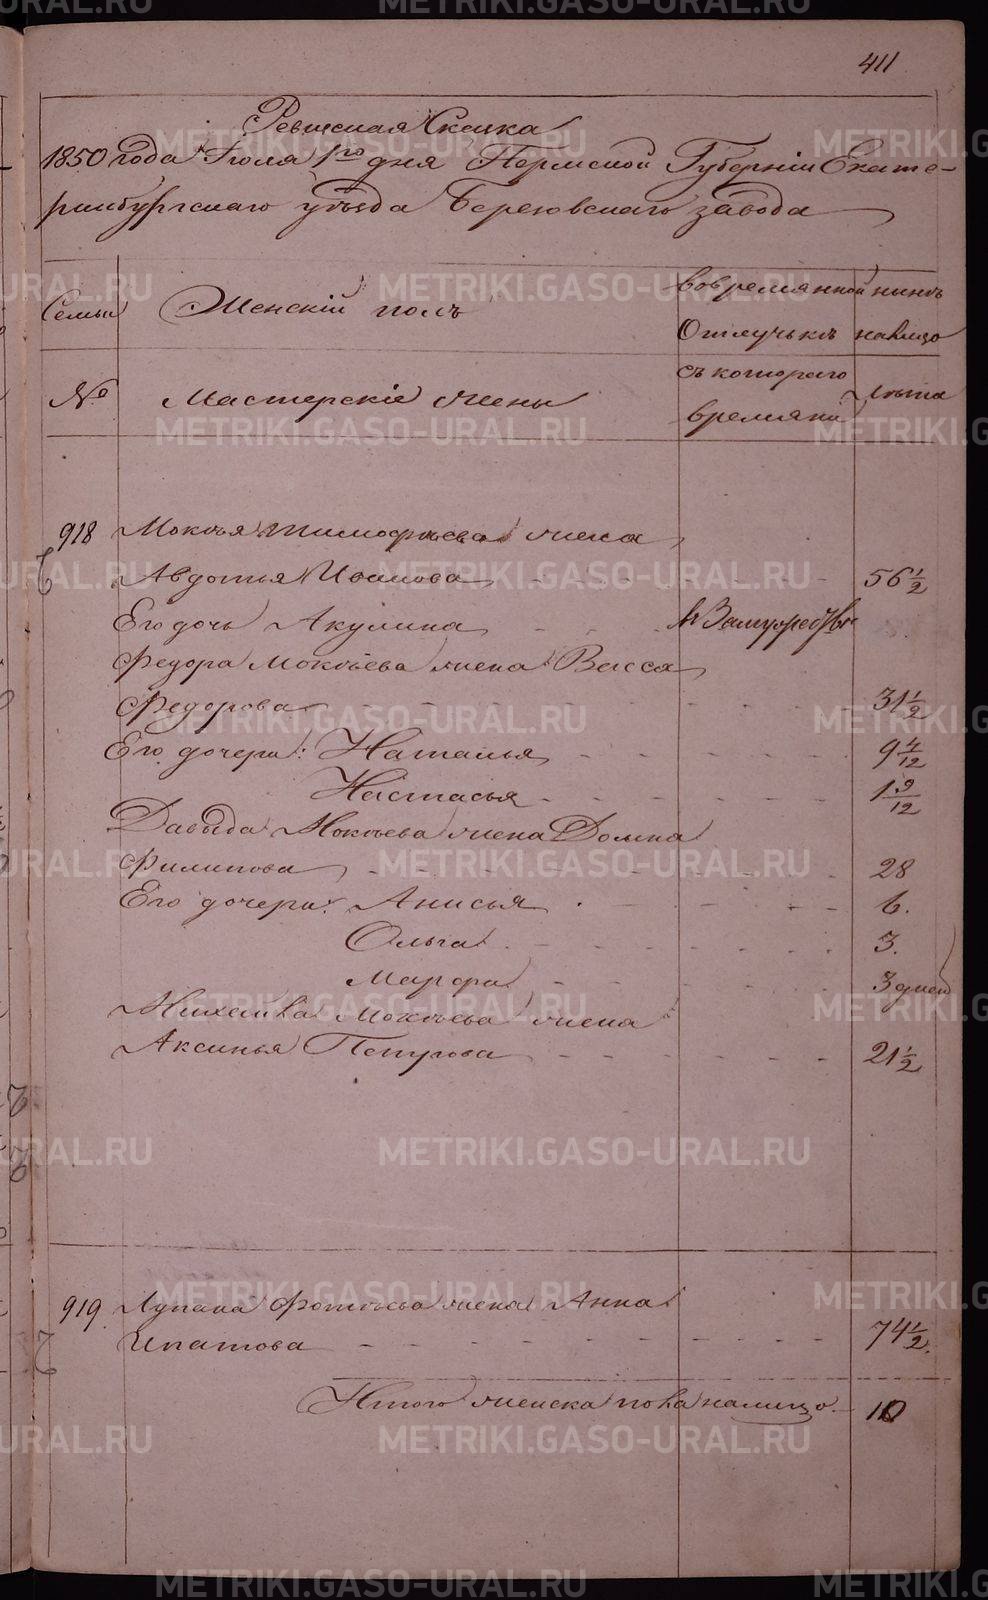 411
Ревизская Сказка
1850 года Июля 1го дня Пермской Губерніи Екате-
ринбургскаго уѣзда Березовскаго завода
Семьи
Женскій полъ
вовремянной
Отлучькѣ
нынѣ
налицо
№
Мастерскіе жены
съ котораго
времяни
Лѣта
918
Мокѣя Тимофѣева жена
Авдотья Иванова 56 1/2
Его дочь Акулина в Замужествѣ
Федора Мокѣева жена Васса
Федорова 31 1/2
Его дочери: Наталья 9 4/12
Настасья 1 9/12
Давыда Мокѣева жена Домна
Филипова 28
Его дочери: Анисья 6.
Ольга 3.
Марфа 3 дней
Михаила Мокѣева жена
Аксинья Петрова 21 1/2
919
Лупана Фотѣева жена Анна
Ипатова 74 1/2.
Итого женска пола налицо 10
METRIKI.GASO-URAL.RU